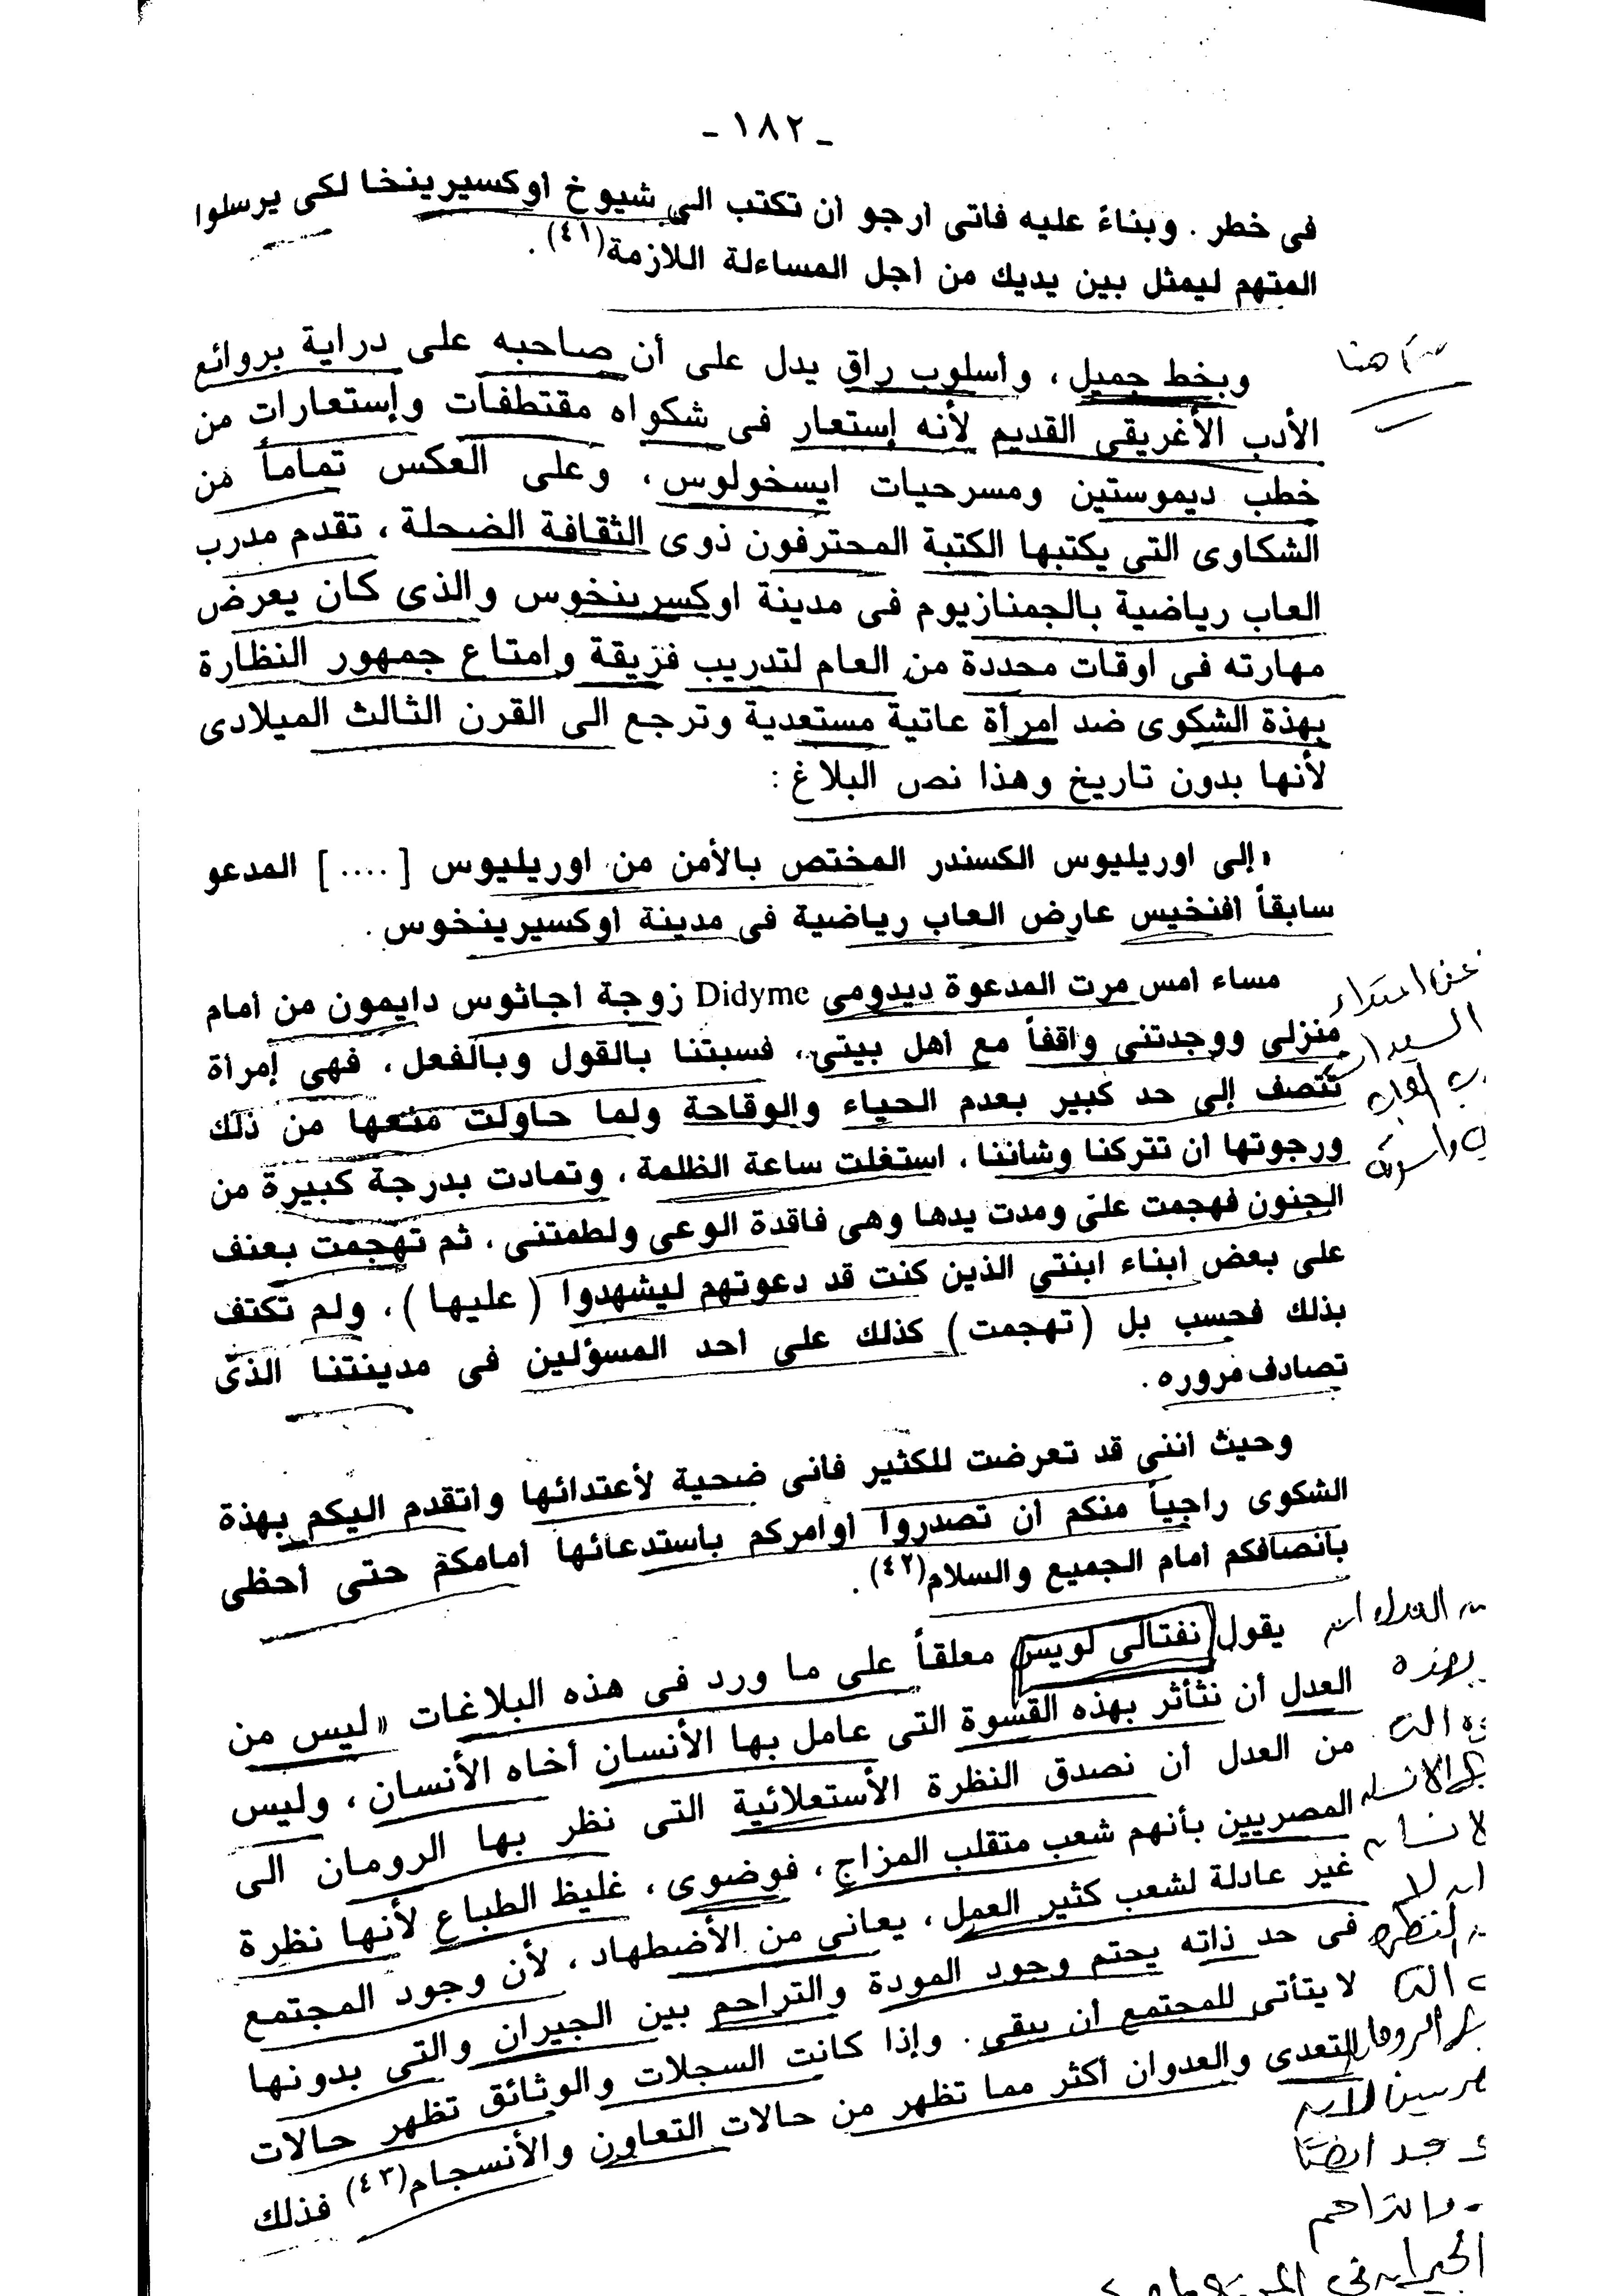 ـ ١٨٢ ـ
فى خطر . وبناءً عليه فاتى أرجو أن تكتب الى شيوخ أوكسيرينخا لكى يرسلوا
المتهم ليمثل بين يديك من أجل المساءلة اللازمة(٤١) .
وبخط جميل ، وأسلوب راق يدل على أن صاحبه على دراية بروائع
الأدب الأغريقى القديم لأنه إستعار فى شكواه مقتطفات وإستعارات من
خطب ديموستين ومسرحيات ايسخولوس ، وعلى العكس تماماً من
الشكاوى التى يكتبها الكتبة المحترفون ذوى الثقافة الضحلة ، تقدم مدرب
العاب رياضية بالجمنازيوم فى مدينة اوكسرينخوس والذى كان يعرض
مهارته فى اوقات محددة من العام لتدريب فزيقة وامتاع جمهور النظارة
بهذة الشكوى ضد امرأة عاتية مستعدية وترجع الى القرن الثالث الميلادى
لأنها بدون تاريخ وهذا نص البلاغ :
«إلى اوريليوس الكسندر المختص بالأمن من اوريليوس [ .... ] المدعو
سابقاً افنخيس عارض العاب رياضية فى مدينة أوكسيرينخوس .
مساء أمس مرت المدعوة ديدومى Didyme زوجة أجاثوس دايمون من أمام
منزلى ووجدتنى واقفاً مع أهل بيتى ، فسبتنا بالقول وبالفعل ، فهى إمرأة
تتصف إلى حد كبير بعدم الحياء والوقاحة ولما حاولت منعها من ذلك
ورجوتها أن تتركنا وشاننا ، استغلت ساعة الظلمة ، وتمادت بدرجة كبيرة من
الجنون فهجمت علىّ ومدت يدها وهى فاقدة الوعى ولطمتنى ، ثم تهجمت بعنف
على بعض أبناء ابنتى الذين كنت قد دعوتهم ليشهدوا ( عليها ) ، ولم تكتف
بذلك فحسب بل ( تهجمت ) كذلك على أحد المسؤلين فى مدينتنا الذى
تصادف مروره .
وحيث أننى قد تعرضت للكثير فانى ضحية لأعتدائها واتقدم اليكم بهذة
الشكوى راجياً منكم أن تصدروا أوامركم باستدعائها أمامكم حتى أحظى
بأنصافكم أمام الجميع والسلام(٤٢) .
يقول نفتالى لويس معلقاً على ما ورد فى هذه البلاغات «ليس من
العدل أن نتأثر بهذه القسوة التى عامل بها الأنسان أخاه الأنسان ، وليس
من العدل أن نصدق النظرة الأستعلائية التى نظر بها الرومان الى
المصريين بأنهم شعب متقلب المزاج ، فوضوى ، غليظ الطباع لأنها نظرة
غير عادلة لشعب كثير العمل ، يعانى من الأضطهاد ، لأن وجود المجتمع
فى حد ذاته يحتم وجود المودة والتراحم بين الجيران والتى بدونها
لا يتأتى للمجتمع أن يبقى . وإذا كانت السجلات والوثائق تظهر حالات
التعدى والعدوان أكثر مما تظهر من حالات التعاون والأنسجام(٤٣) فذلك